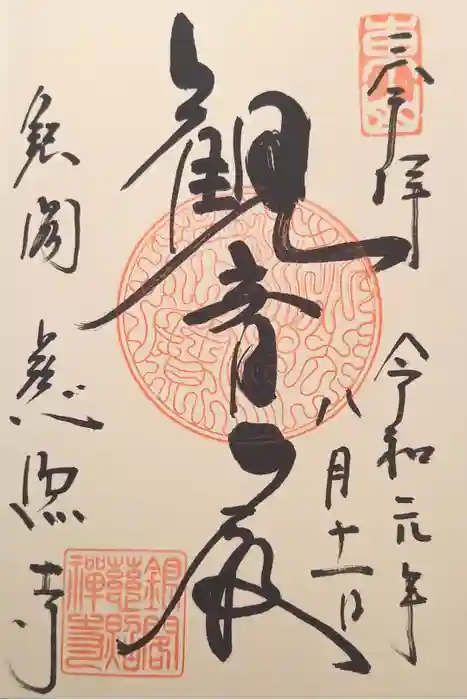 東山
奉拝
令和元年
八月十一日
観音殿
銀閣 慈照寺
銀閣
慈照
禪寺